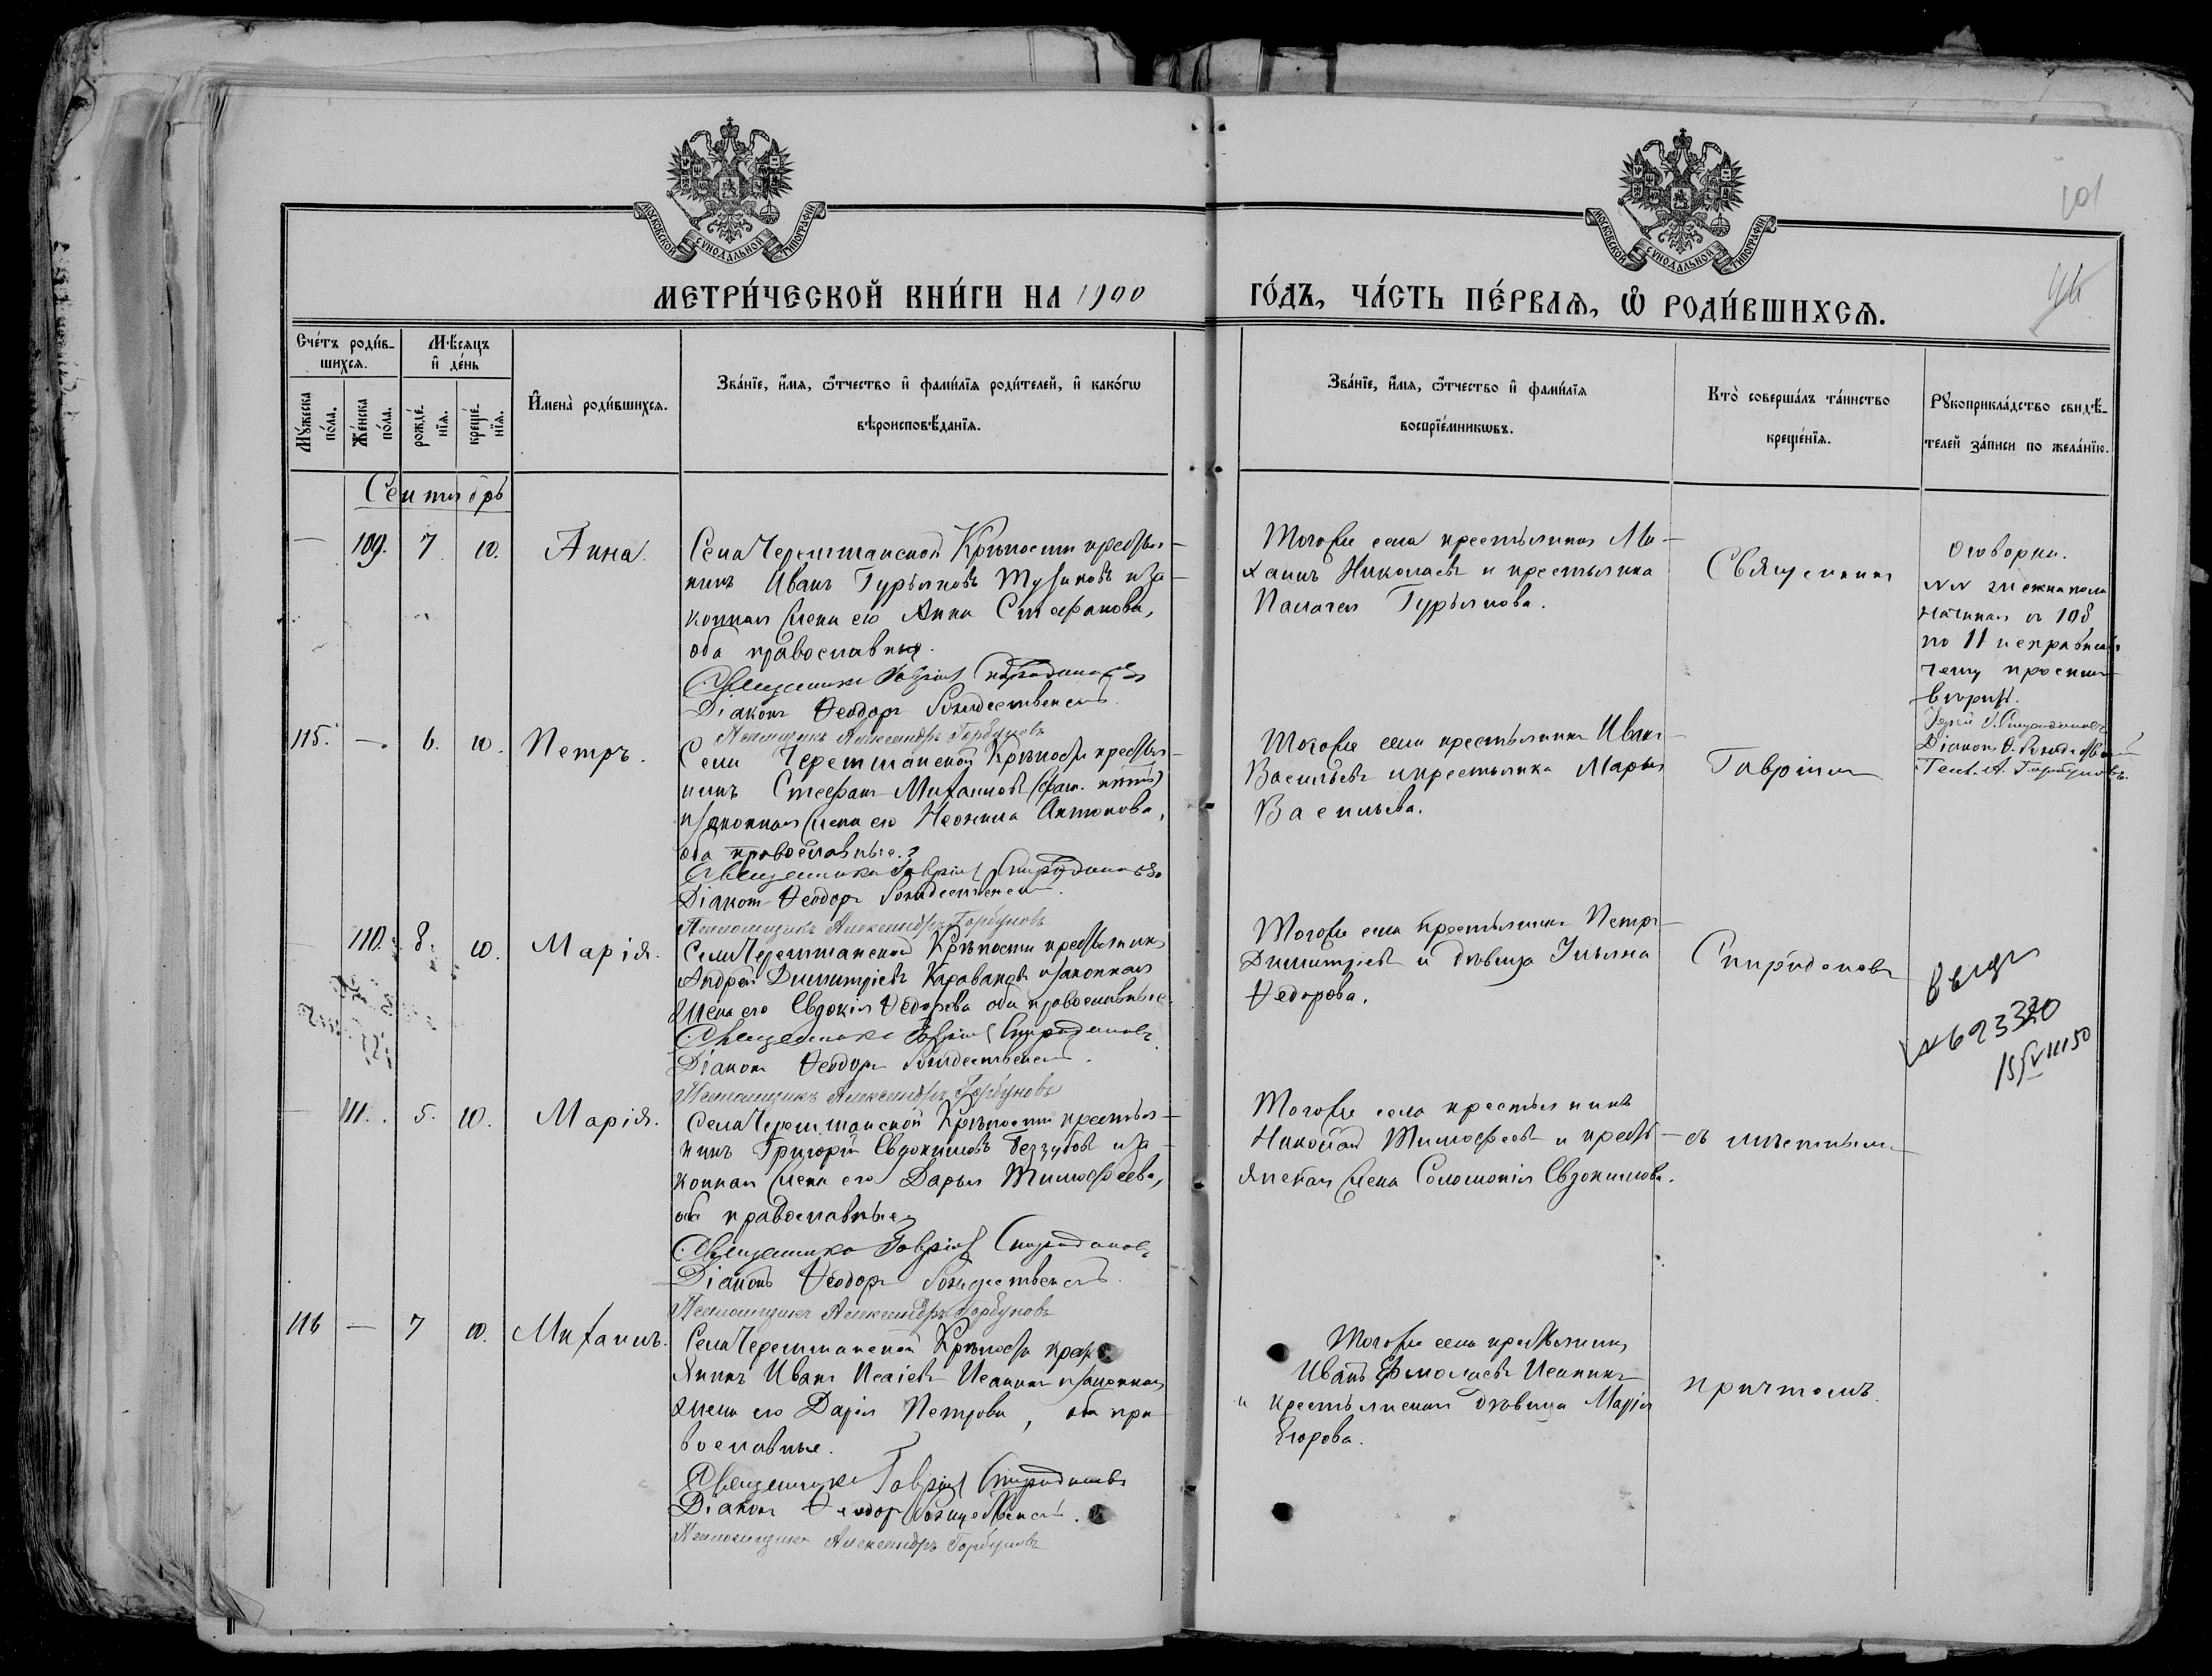 101
96
МОСКОВСКОЙ СѴНОДАЛЬНОЙ ТИПОГРАФІИ
МОСКОВСКОЙ СѴНОДАЛЬНОЙ ТИПОГРАФІИ
МЕТРИ́ЧЕСКОЙ КНИ́ГИ НА 1900
ГО́ДЪ, ЧА́СТЬ ПЕ́РВАѦ, Ѡ РОДИ́ВШИХСѦ.
Сче́тъ роди́в-
шихсѧ.
Мꙋ́жеска по́ла.
Же́нска по́ла.
Мѣ́сяцъ
и҆ де́нь
рожде́-
нїѧ.
креще́-
нїѧ.
И҆мена̀ роди́вшихсѧ.
Зва́нїе, и҆́мѧ, ѻ҆́тчество и҆ фами́лїѧ роди́телей, и҆ како́гѡ
вѣроисповѣ́данїѧ.
Зва́нїе, и҆́мѧ, ѻ҆́тчество и҆ фами́лїѧ
воспрїе́мникѡвъ.
Кто̀ соверша́лъ та́инство
креще́нїѧ.
Рꙋкоприкла́дство свидѣ́-
телей за́писи по жела́нїю.
Сентябрь
— 109. 7 10. Анна.
Села Черемшанской Крѣпости крестья-
нинъ Иванъ Гурьяновъ Тузиковъ и за-
конная жена его Анна Стефанова,
оба православные.
Священникъ Гавріилъ Спиридоновъ
Діаконъ Ѳеодоръ Рождественскій
Псаломщикъ Александръ Горбуновъ
Тогоже села крестьянинъ Ми-
хаилъ Николаевъ и крестьянка
Палагея Гурьянова.
Священникъ
Оговорка.
№№ женска пола
начиная съ 108
по 11 исправлен
чему просимъ
вѣрить.
Іерей Г. Спиридоновъ
Діаконъ Ѳ. Рождественскій
Псал. А. Горбуновъ.
115. —. 6. 10. Петръ.
Села Черемшанской Крѣпости крестья-
нинъ Стефанъ Михаиловъ (фам. нѣтъ)
и законная жена его Неонила Антонова,
оба православные.
Священникъ Гавріилъ Спиридоновъ
Діаконъ Ѳеодоръ Рождественскій.
Псаломщикъ Александръ Горбуновъ
Тогоже села крестьянинъ Иванъ
Васильевъ и крестьянка Марья
Васильева.
Гавріилъ
110. 8. 10. Марія.
Села Черемшанской Крѣпости крестьянинъ
Андрей Димитріевъ Караваевъ и законная
жена его Евдокія Ѳедорова оба православные.
Священникъ Гавріилъ Спиридоновъ
Діаконъ Ѳеодоръ Рождественскій.
Псаломщикъ Александръ Горбуновъ
Тогоже села крестьянинъ Петръ
Димитріевъ и дѣвица Ульяна
Ѳедорова.
Спиридоновъ
№ 693320
15/VIII 50
111. 5. 10. Марія.
Села Черемшанской Крѣпости крестья-
нинъ Григорій Евдокимовъ Беззубовъ и за-
конная жена его Дарья Тимофеева,
оба православные.
Священникъ Гавріилъ Спиридоновъ
Діаконъ Ѳеодоръ Рождественскій.
Псаломщикъ Александръ Горбуновъ
Тогоже села крестьянинъ
Николай Тимофеевъ и кресть-
янская жена Соломонія Евдокимова.
съ мѣстнымъ
116 — 7 10. Михаилъ.
Села Черемшанской Крѣпости крест
янинъ Иванъ Исаіевъ Исакинъ и законная
жена его Дарія Петрова, оба пра-
вославные.
Священникъ Гавріилъ Спиридоновъ
Діаконъ Ѳеодоръ Рождественскій.
Псаломщикъ Александръ Горбуновъ
Тогоже села крестьянинъ
Иванъ Ермолаевъ Исакинъ
и крестьянская дѣвица Марія
Егорова.
причтомъ.